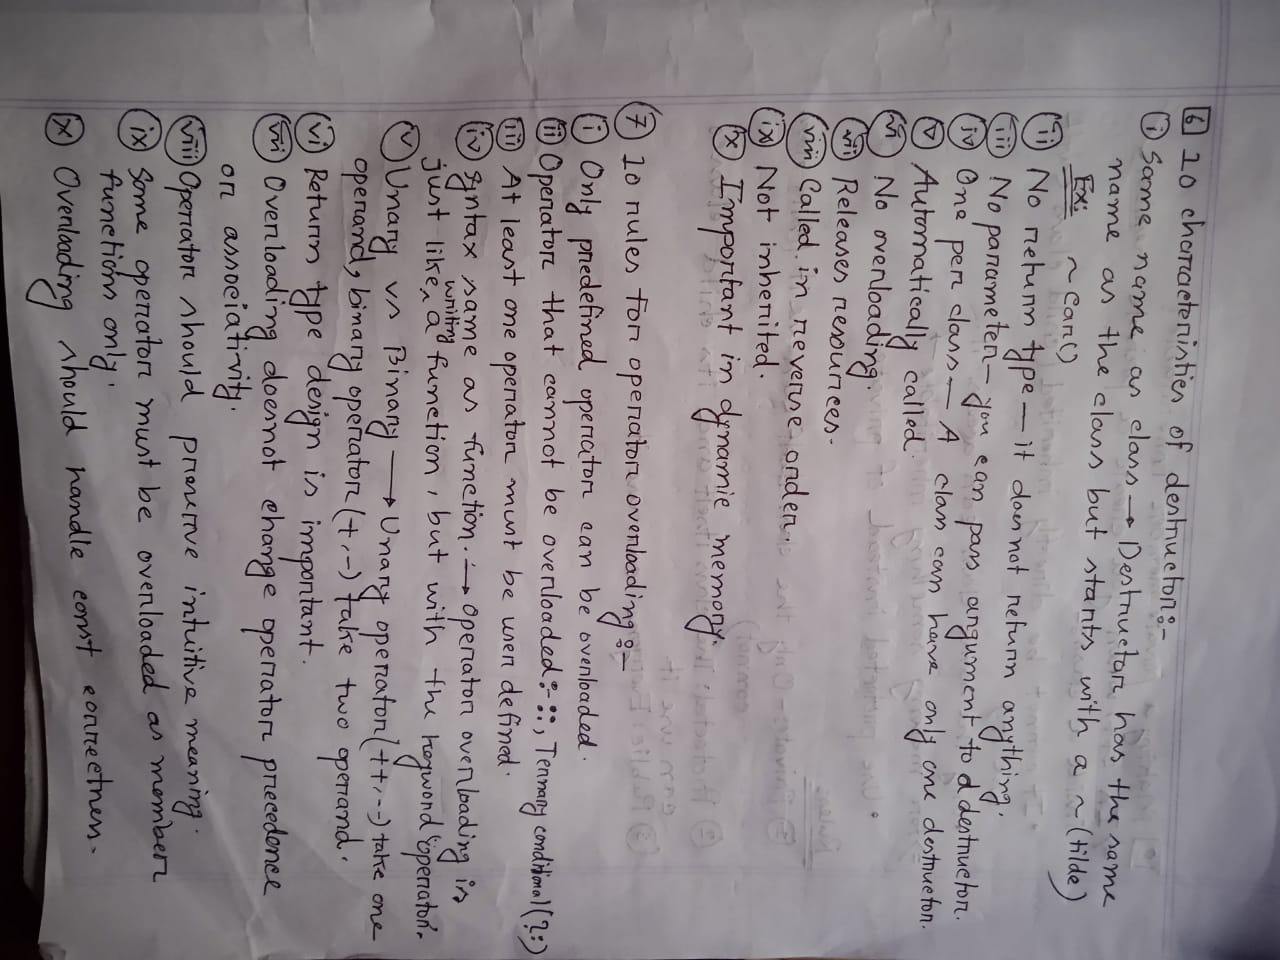 6 10 characteristics of destructor:-
i Same name as class → Destructor has the same
name as the class but starts with a ~ (tilde)
Ex: ~car()
ii No return type — it does not return anything.
iii No parameter - you can pass argument to d destructor.
iv One per class — A class can have only one destructor.
v Automatically called.
vi No overloading.
vii Releases resources.
viii Called in reverse order.
ix Not inherited.
x Important in dynamic memory.
7 10 rules for operator overloading:-
i Only predefined operator can be overloaded.
ii Operator that cannot be overloaded:- ::, Ternary conditional (?:)
iii At least one operator must be user defined.
iv Syntax same as function. → operator overloading is
just like writing a function, but with the keyword 'operator'.
v Unary vs Binary → Unary operator (++,--) take one
operand, binary operator (+,-) take two operand.
vi Return type design is important.
vii Overloading does not change operator precedence
or associativity.
viii Operator should preserve intuitive meaning.
ix Some operator must be overloaded as member
functions only.
x Overloading should handle const correctness.